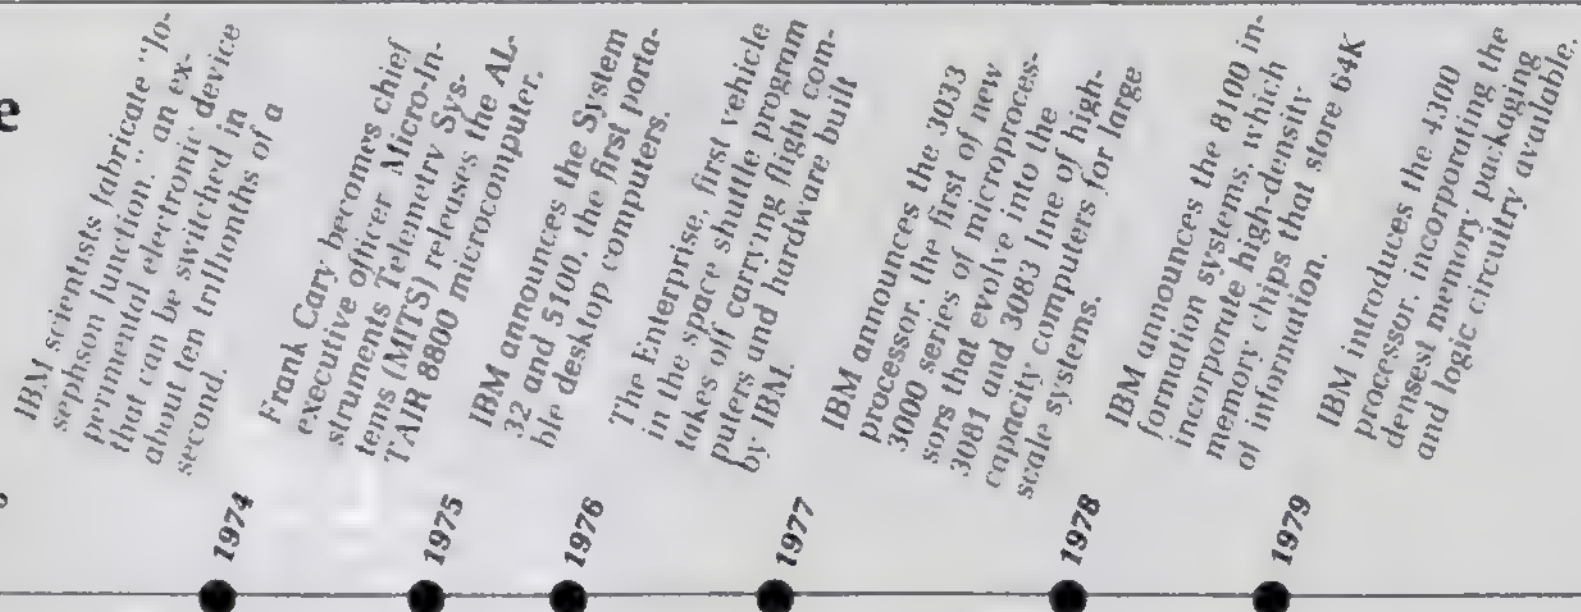 e
IBM scientists fabricate "Jo-
sephson junction," an ex-
perimental electronic device
that can be switched in
about ten trillionths of a
second.
1974
Frank Cary becomes chief
executive officer Micro-In-
struments Telemetry Sys-
tems (MITS) releases the AL-
TAIR 8800 microcomputer.
1975
IBM announces the System
32 and 5100, the first porta-
ble desktop computers.
1976
The Enterprise, first vehicle
in the space shuttle program
takes off carrying flight com-
puters and hardware built
by IBM.
1977
IBM announces the 3033
processor, the first of new
3000 series of microproces-
sors that evolve into the
3081 and 3083 line of high-
capacity computers for large
scale systems.
1978
IBM announces the 8100 in-
formation systems, which
incorporate high-density
memory chips that store 64K
of information.
1979
IBM introduces the 4300
processor, incorporating the
densest memory packaging
and logic circuitry available.